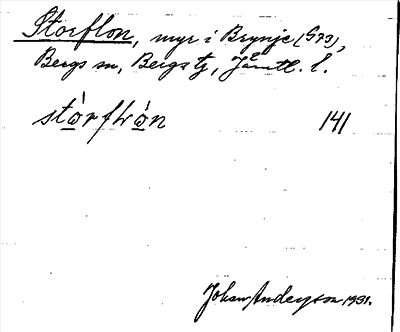 Storflon, myr i Brynje (573),
Bergs sn, Bergs tg, Jämtl. l.
stòrflòn 141
Johan Anderson 1931.